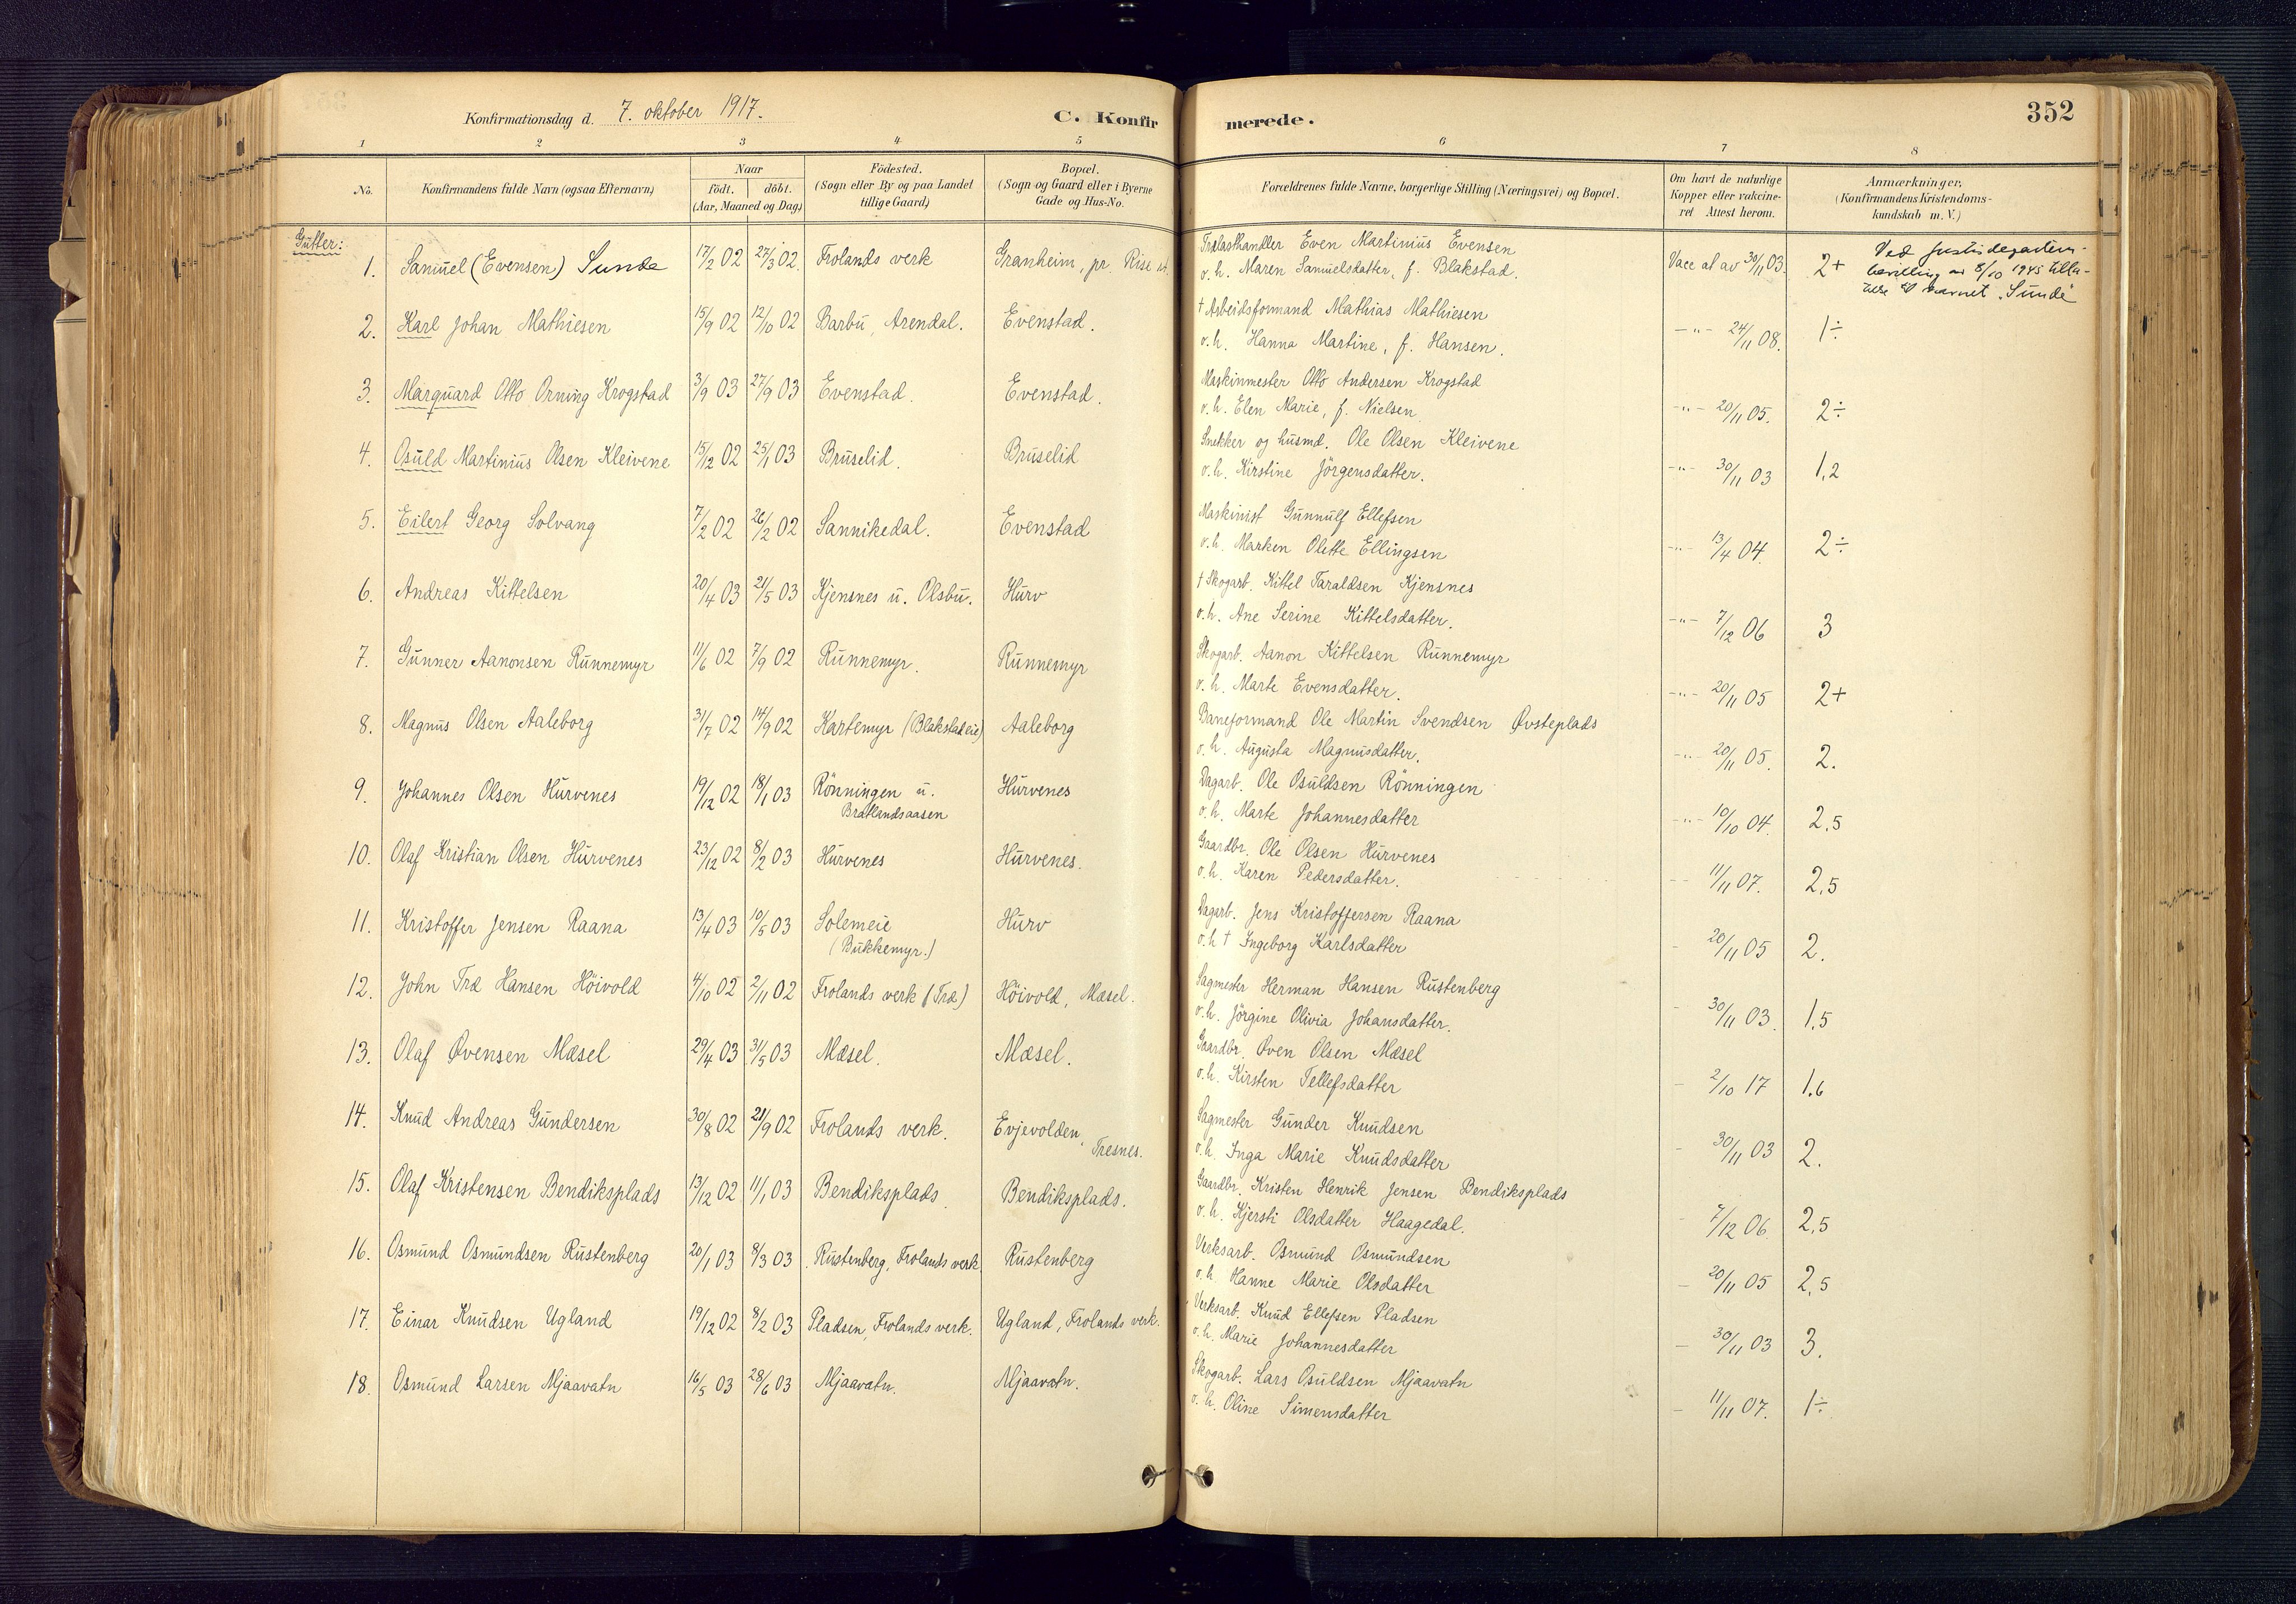 Konfirmationsdag d. 7. oktober 1917.
C. Konfirmerede.
352
1 2 3 4 5 6 7 8
No.
Konfirmandens fulde Navn (ogsaa Efternavn)
Naar
födt. döbt.
(Aar, Maaned og Dag)
Födested.
(Sogn eller By og paa Landet
tillige Gaard)
Bopæl.
(Sogn og Gaard eller i Byerne
Gade og Hus-No.
Forældrenes fulde Navne, borgerlige Stilling (Næringsvei) og Bopæl.
Om havt de naturlige
Kopper eller vakcine-
ret Attest herom.
Anmærkninger,
(Konfirmandens Kristendoms-
kundskab m. V.)
Gutter:
1. Samuel (Evensen) Sunde 17/2 02 27/3 02. Frolands verk Granheim, pr. Rise st. Trælasthandler Even Martinius Evensen
o. h. Maren Samuelsdatter, f. Blakstad. Vacc at av 30/11 03. 2+
Ved justisdepartem-
bevilling av 8/10 1945 tilla-
telse til navnet "Sunde"
2. Karl Johan Mathiesen 15/9 02 12/10 02 Barbu, Arendal. Evenstad. † Arbeidsformand Mathias Mathiesen
o. h. Hanna Martine, f. Hansen. -"- 24/11 08. 1÷
3. Marquard Otto Orning Krogstad 3/9 03 27/9 03 Evenstad. Evenstad. Maskinmester Otto Andersen Krogstad
o. h. Elen Marie, f. Nielsen -"- 20/11 05. 2÷
4. Osuld Martinius Olsen Kleivene 15/12 02 25/1 03 Bruselid. Bruselid Snekker og husmd. Ole Olsen Kleivene
o. h. Kirstine Jörgensdatter. -"- 30/11 03 1,2
5. Eilert Georg Solvang 7/2 02 26/2 02 Sannikedal. Evenstad Maskinist Gunnulf Ellefsen
o. h. Marken Olette Ellingsen -"- 13/4 04. 2÷
6. Andreas Kittelsen 20/4 03 21/5 03 Kjensnes u. Olsbu. Hurv † Skogarb. Kittel Taraldsen Kjensnes
o. h. Ane Serine Kittelsdatter. -"- 7/12 06 3
7. Gunner Aanonsen Runnemyr 11/6 02 7/9 02 Runnemyr. Runnemyr Skogarb. Aanon Kittelsen Runnemyr
o. h. Marte Evensdatter. -"- 20/11 05 2+
8. Magnus Olsen Aaleborg 31/7 02 14/9 02 Kartemyr (Blakstadeie) Aaleborg Baneformand Ole Martin Svendsen Øvsteplads
o. h. Augusta Magnusdatter. -"- 20/11 05. 2.
9. Johannes Olsen Hurvenes 19/12 02 18/1 03 Rönningen u.
Bratlandsaasen Hurvenes Dagarb. Ole Osuldsen Rönningen
o. h. Marte Johannesdatter -"- 10/10 04. 2.5
10. Olaf Kristian Olsen Hurvenes 23/12 02 8/2 03 Hurvenes Hurvenes. Gaardbr. Ole Olsen Hurvenes
o. h. Karen Pedersdatter. -- 11/11 07. 2,5
11. Kristoffer Jensen Raana 13/4 03 10/5 03 Solemeie
(Bukkemyr.) Hurv Dagarb. Jens Kristoffersen Raana
o. h † Ingeborg Karlsdatter - 20/11 05 2.
12. John Træ Hansen Höivold 4/10 02 2/11 02 Frolands verk (Træ) Höivold, Mæsel. Sagmester Herman Hansen Rustenberg
o. h. Jörgine Olivia Johansdatter. - 30/11 03. 1,5
13. Olaf Øvensen Mæsel 29/4 03 31/5 03 Mæsel. Mæsel. Gaardbr. Øven Olsen Mæsel
o. h. Kirsten Tellefsdatter - 2/10 17 1.6
14. Knud Andreas Gundersen 30/8 02 21/9 02 Frolands verk. Evjevolden, Tresnes. Sagmester Gunder Knudsen
o. h. Inga Marie Knudsdatter - 30/11 03 2.
15. Olaf Kristensen Bendiksplads 13/12 02 11/1 03 Bendiksplads. Bendiksplads. Gaardbr. Kristen Henrik Jensen Bendiksplads
o. h. Kjersti Olsdatter Haagedal. - 7/12 06. 2,5
16. Osmund Osmundsen Rustenberg 20/1 03 8/3 03 Rustenberg, Frolands verk. Rustenberg Verksarb. Osmund Osmundsen
o. h Hanne Marie Olsdatter - 20/11 05 2,5
17. Einar Knudsen Ugland 19/12 02 8/2 03 Pladsen, Frolands verk. Ugland, Frolands verk. Verksarb. Knud Ellefsen Pladsen
o. h. Marie Johannesdatter - 30/11 03 3.
18. Osmund Larsen Mjaavatn 16/5 03 28/6 03 Mjaavatn. Mjaavatn. Skogarb. Lars Osuldsen Mjaavatn
o. h. Oline Simensdatter - 11/11 07. 1÷